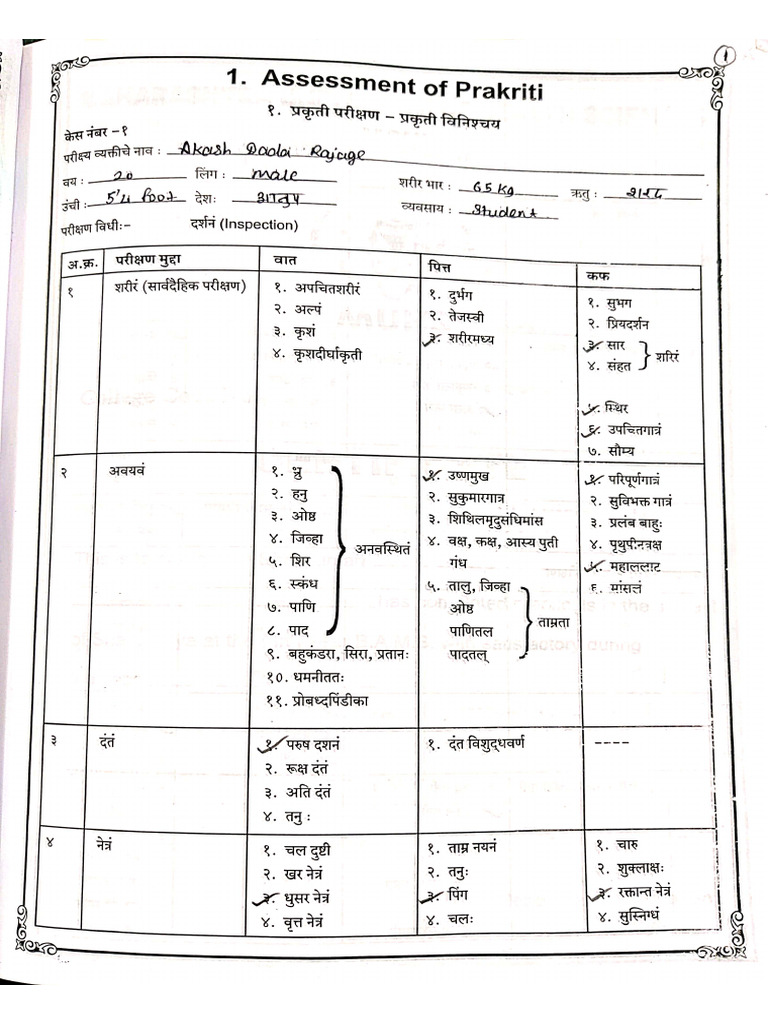 1
1. Assessment of Prakriti
१. प्रकृती परीक्षण – प्रकृती विनिश्चय
केस नंबर –१
परीक्ष्य व्यक्तीचे नाव : Akash Dada Rajage
वय : 20 लिंग : male शरीर भार : 65 kg ऋतु : शरद
उंची : 5'4 foot देश: आनुप व्यवसाय : Student
परीक्षण विधी:- दर्शनं (Inspection)
अ.क्र. परीक्षण मुद्दा वात पित्त कफ
१ शरीरं (सार्वदैहिक परीक्षण)
१. अपचितशरीरं
२. अल्पं
३. कृशं
४. कृशदीर्घाकृती
१. दुर्भग
२. तेजस्वी
३. शरीरमध्य
१. सुभग
२. प्रियदर्शन
३. सार
४. संहत
शरिरं
५. स्थिर
६. उपचितगात्रं
७. सौम्य
२ अवयवं
१. भ्रु
२. हनु
३. ओष्ठ
४. जिव्हा
५. शिर
६. स्कंध
७. पाणि
८. पाद
अनवस्थितं
९. बहुकंडरा, सिरा, प्रतानः
१०. धमनीततः
११. प्रोबध्दपिंडीका
१. उष्णमुख
२. सुकुमारगात्र
३. शिथिलमृदुसंधिमांस
४. वक्ष, कक्ष, आस्य पुती
गंध
५. तालु, जिव्हा
ओष्ठ
पाणितल
पादतल्
ताम्रता
१. परिपूर्णगात्रं
२. सुविभक्त गात्रं
३. प्रलंब बाहुः
४. पृथुपीनवक्ष
५. महाललाट
६. मांसलं
३ दंतं
१. परुष दशनं
२. रूक्ष दंतं
३. अति दंतं
४. तनु :
१. दंत विशुद्धवर्ण
----
४ नेत्रं
१. चल दुष्टी
२. खर नेत्रं
३. धुसर नेत्रं
४. वृत्त नेत्रं
१. ताम्र नयनं
२. तनुः
३. पिंग
४. चलः
१. चारु
२. शुक्लाक्षः
३. रक्तान्त नेत्रं
४. सुस्निग्धं